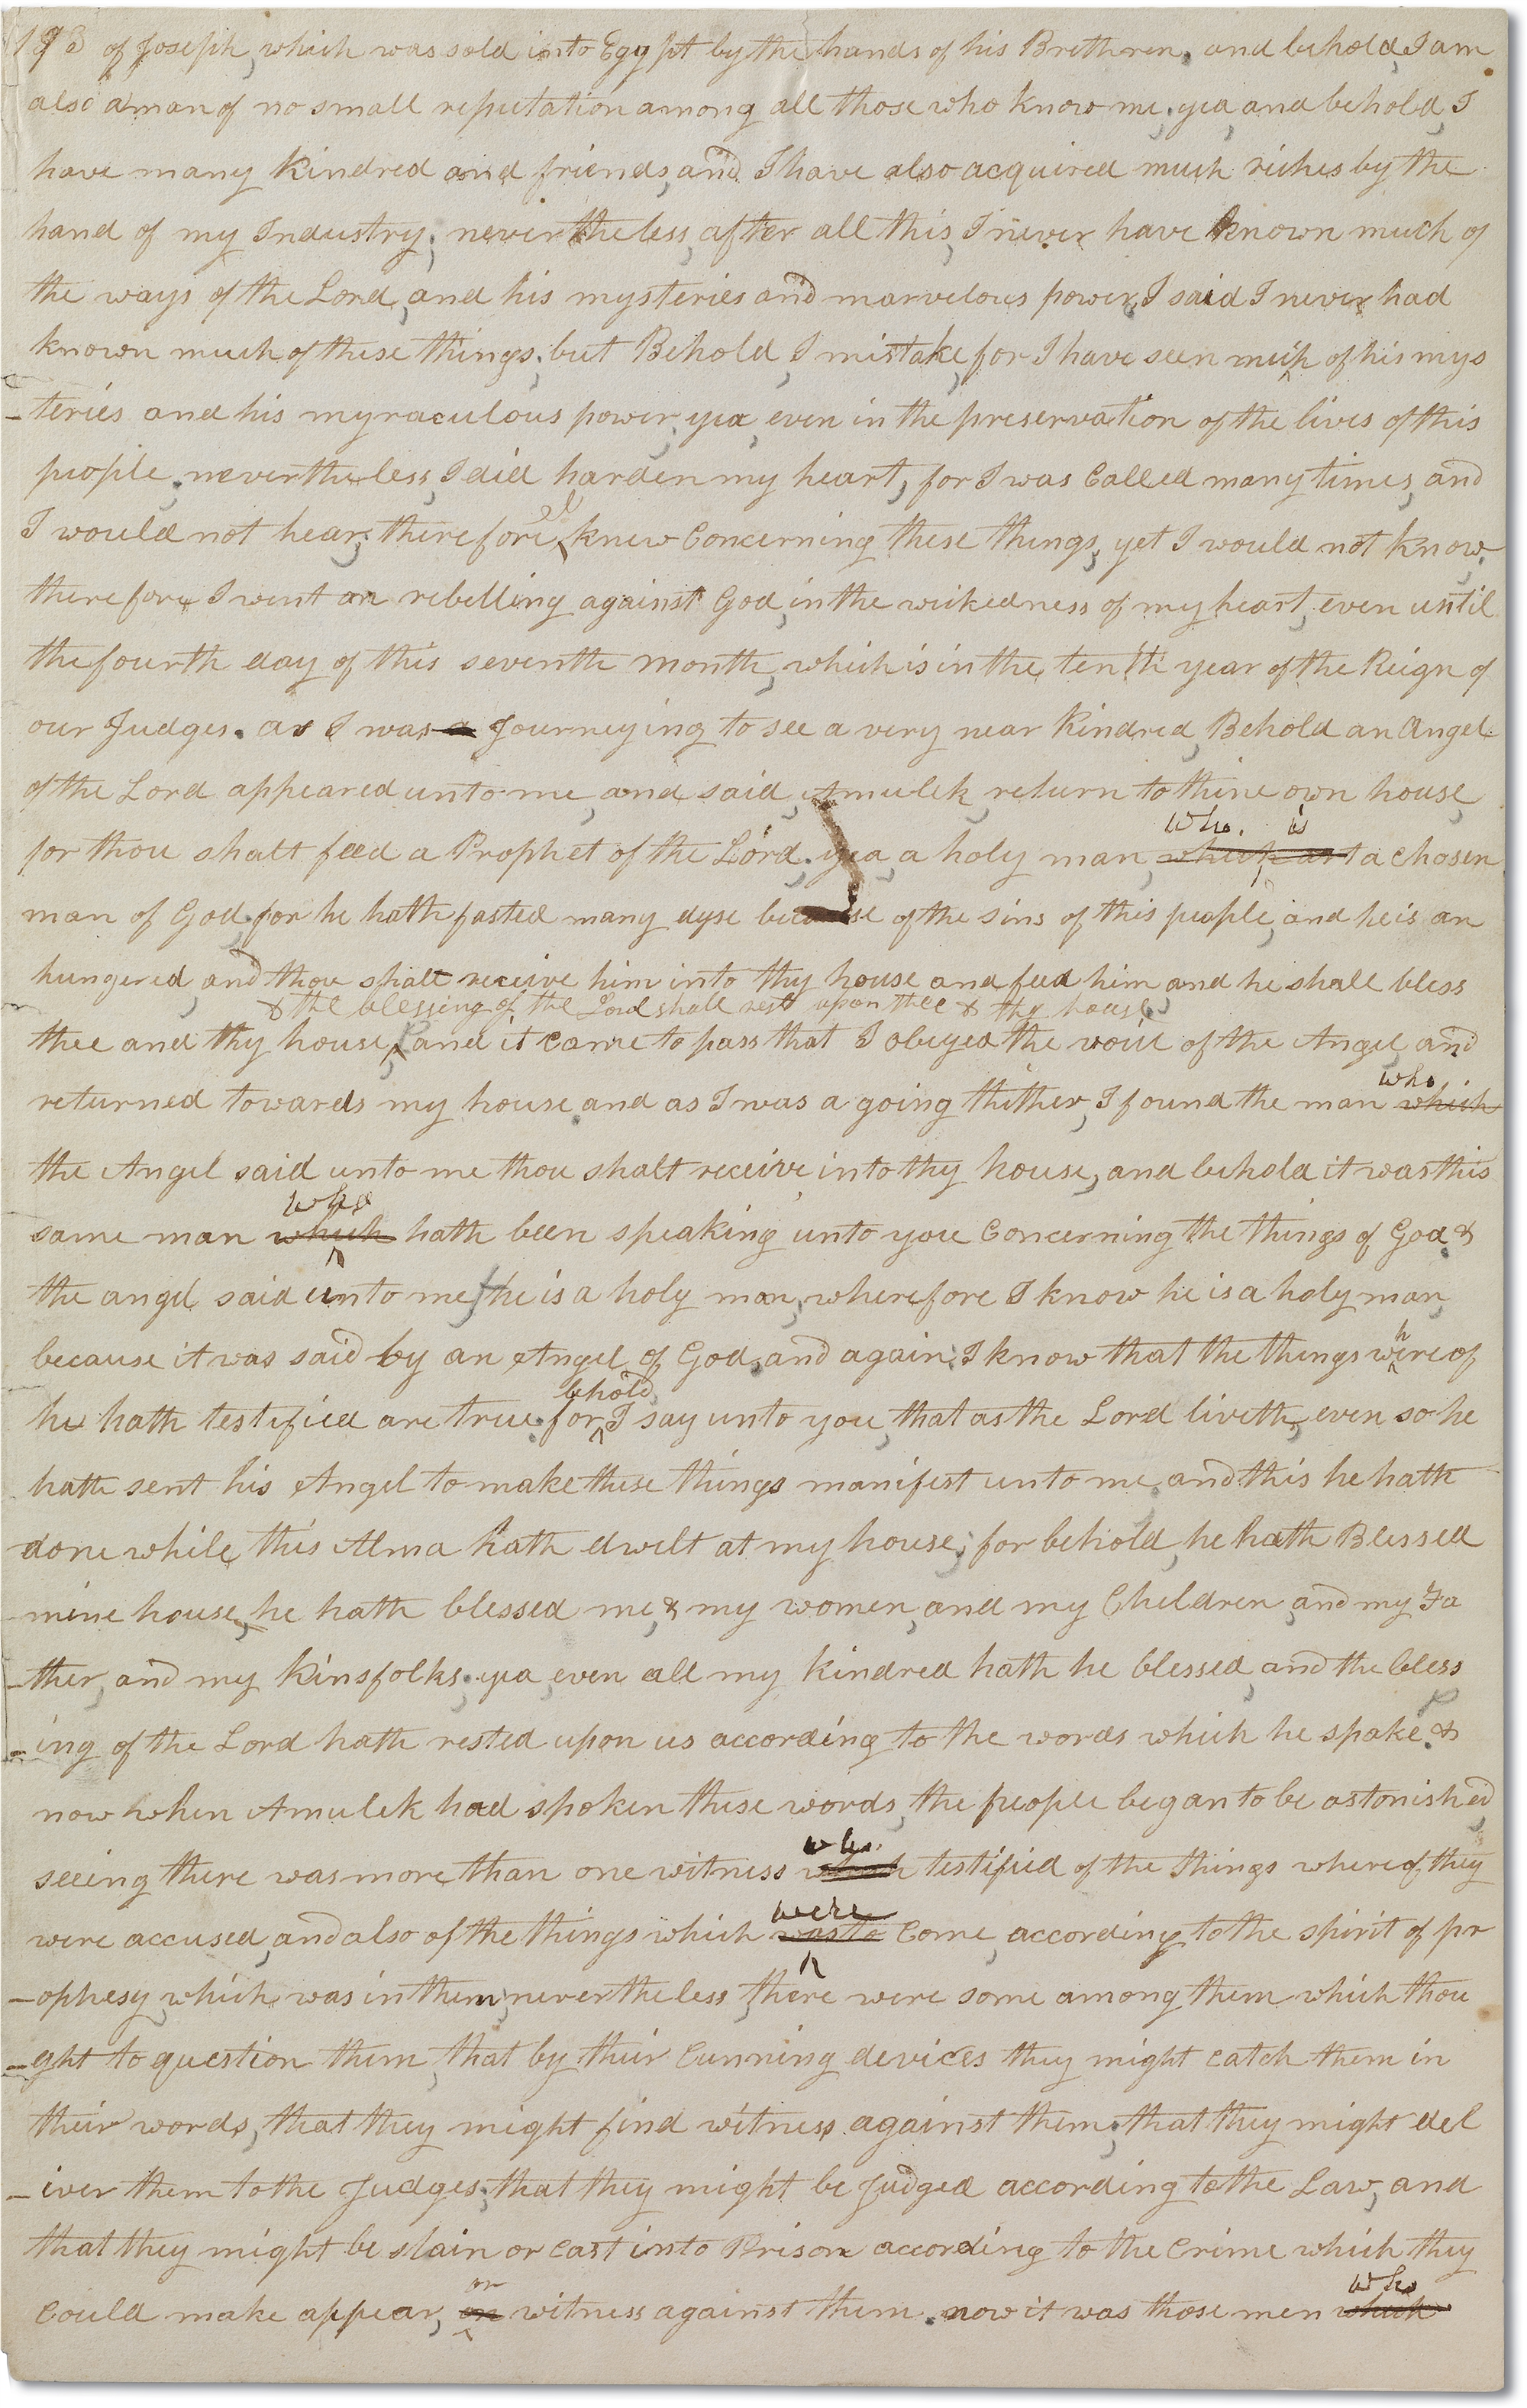 193 of Joseph, which was sold into Egypt by the hands of his Brethren. and behold, I am
also a man of no small reputation among all those who know me. yea, and behold, I
have many Kindred and friends, and I have also acquired much riches by the
hand of my Industry; nevertheless, after all this, I never have known much of
the ways of the Lord, and his mysteries and marvelous power, I said I never had
known much of these things; but Behold, I mistake, for I have seen much of his mys
-teries and his myraculous power, yea, even in the preservation of the lives of this
people. nevertheless, I did harden my heart, for I was Called many times, and
I would not hear; therefore I knew Concerning these things, yet I would not know,
therefore I went on rebelling against God, in the wickedness of my heart, even until
the fourth day of this seventh month, which is in the tenth year of the Reign of
our Judges. as I was a Journeying to see a very near Kindred, Behold an Angel
of the Lord appeared unto me, and said, Amulek, return to thine own house,
who. is
for thou shalt feed a Prophet of the Lord. yea, a holy man, which art a Chosen
man of God, for he hath fasted many dyse because of the sins of this people, and he is an
hungered, and thou shalt receive him into thy house and feed him and he shall bless
& the blessing of the Lord shall rest upon thee & thy house
thee and thy house, and it Came to pass that I obeyed the voice of the Angel, and
who,
returned towards my house. and as I was a going thither, I found the man which
the Angel said unto me thou shalt receive into thy house, and behold it was this
who
same man which hath been speaking unto you Concerning the things of God. &
the angel said unto me, he is a holy man, wherefore I know he is a holy man,
because it was said by an Angel of God, and again, I know that the things whereof
behold,
he hath testified are true. for, I say unto you, that as the Lord liveth, even so he
hath sent his Angel to make these things manifest unto me, and this he hath
done while this Alma hath dwelt at my house; for behold, he hath Blessed
mine house, he hath blessed me, & my women, and my Children, and my Fa
-ther, and my Kinsfolks. yea, even all my Kindred hath he blessed, and the bless
-ing of the Lord hath rested upon us according to the words which he spake. &
now when Amulek had spoken these words, the people began to be astonished,
who.
seeing there was more than one witness which testified of the things whereof they
were
were accused, and also of the things which was to Come, according to the spirit of pr
-ophesy, which was in them, nevertheless, there were some among them which thou
-ght to question them, that by their Cunning devices they might catch them in
their words, that they might find witness against them; that they might del
-iver them to the Judges; that they might be Judged according to the Law, and
that they might be slain or cast into Prison according to the Crime which they
or who
Could make appear, on witness against them. now it was those men which